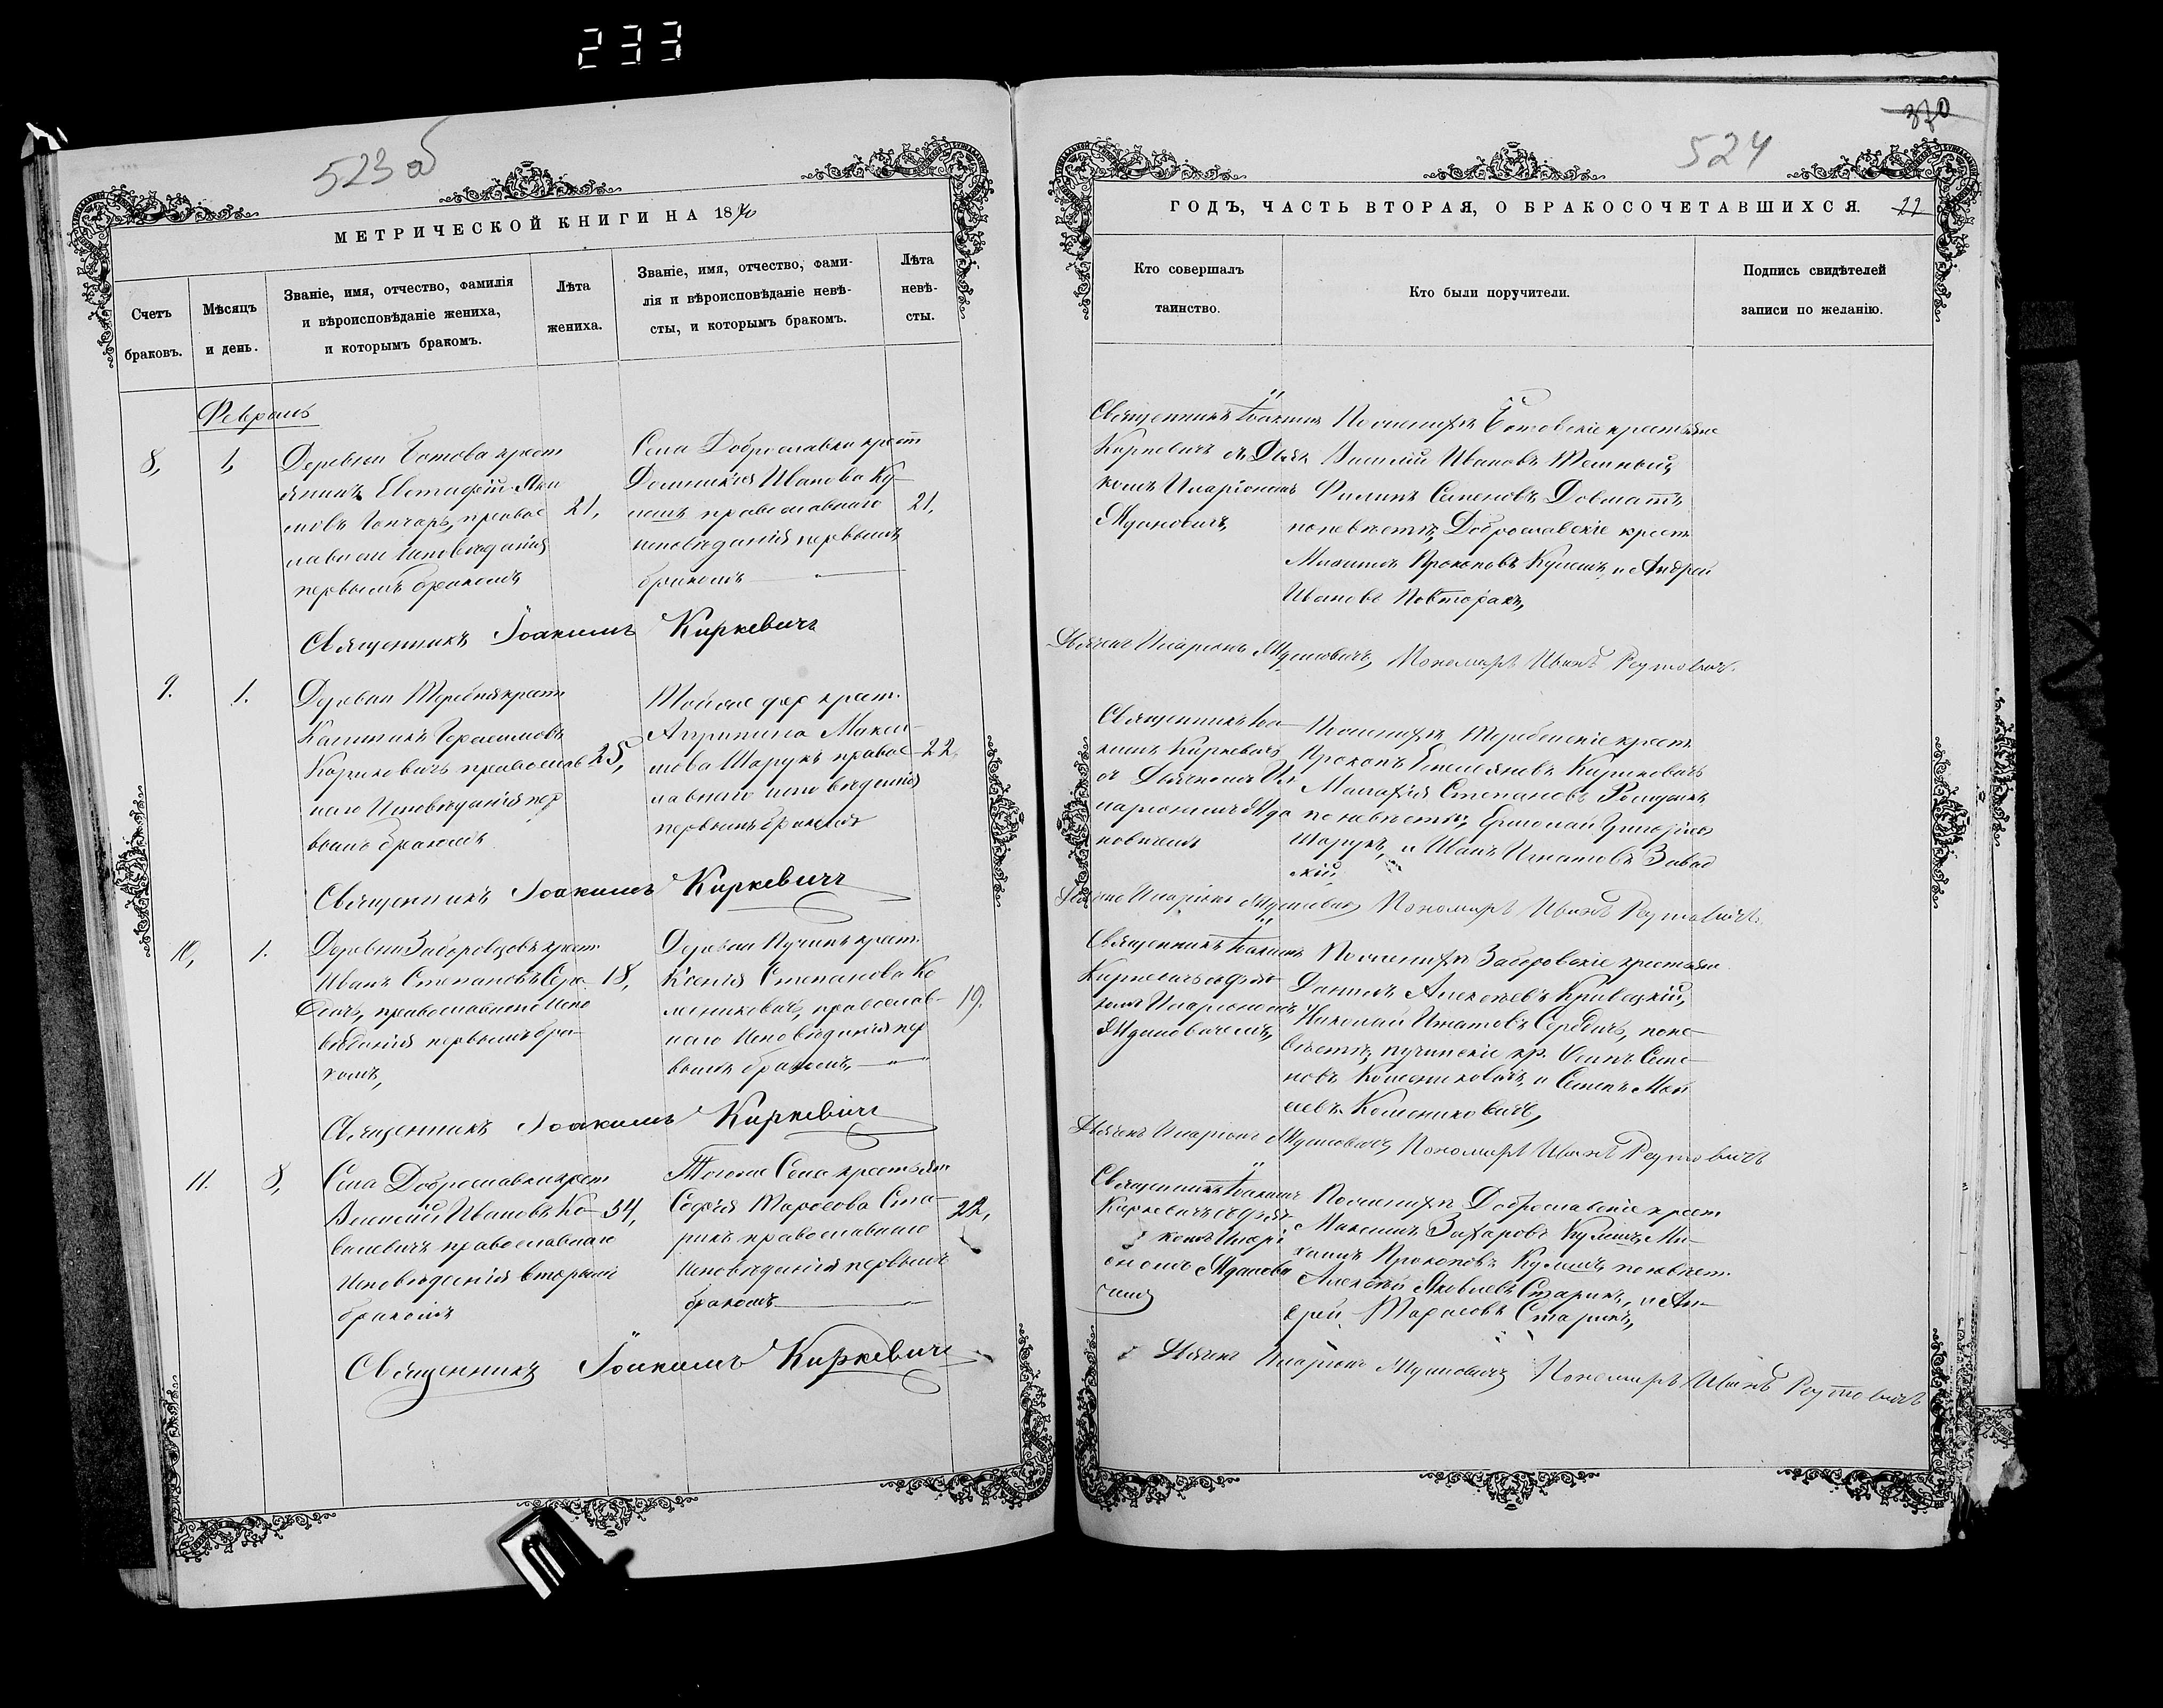 233
523 об
МЕТРИЧЕСКОЙ КНИГИ НА 1870
Счетъ
браковъ.
Мѣсяцъ
и день.
Званіе, имя, отчество, фамилія
и вѣроисповѣданіе жениха,
и которымъ бракомъ.
Лѣта
жениха.
Званіе, имя, отчество, фами-
лія и вѣроисповѣданіе невѣ-
сты, и которымъ бракомъ.
Лѣта
невѣ-
сты.
Февраль
8,
1,
Деревни Ботова крест
янинъ Евстафій Яки
мовъ Гончаръ, правос
лавнаго исповѣданія
первымъ бракомъ
21,
Села Доброславки крест
Домникія Иванова Ку-
лешъ православнаго
исповѣданія первымъ
бракомъ
21,
Священникъ Іоакимъ Киркевичъ
9.
1.
Деревни Теребня крест
Герасимовъ
Кориковичъ православ
наго Исповѣданія пер
вымъ бракомъ
25,
Тойже дер крест.
Агрипина Макси-
мова Шарукъ правос-
лавнаго исповѣданія
первымъ бракомъ
22
Священникъ Іоакимъ Киркевичъ
10,
1.
Деревни Заборовцовъ крест
Иванъ Степановъ Сер-
дечъ, православнаго Испо
вѣданія первымъ бра-
комъ,
18,
Деревни Пучинъ крест.
Ксенія Степанова Ко
лениковичъ, православ-
наго Исповѣданія пер
вымъ бракомъ,
19.
Священникъ Іоакимъ Киркевичъ
11.
8,
Села Доброславки крест
Алексѣй Ивановъ Ко-
валевичъ православнаго
Исповѣданія вторымъ
бракомъ
34,
Тогоже Села крестьян
Софія Тарасова Ста-
рикъ православнаго
Исповѣданія первымъ
бракомъ
22,
Священникъ Іоакимъ Киркевичъ
370
524
ГОДЪ, ЧАСТЬ ВТОРАЯ, О БРАКОСОЧЕТАВШИХСЯ.
22
Кто совершалъ
таинство.
Кто были поручители.
Подпись свидѣтелей
записи по желанію.
Священникъ Іоакимъ
Киркевичъ съ Дьяч
комъ Иларіономъ
Ждановичъ,
По женихѣ Ботовскіе крестьяне
Василій Ивановъ
Филипъ Семеновъ Довматъ,
по невѣстѣ, Доброславскіе крест
Прокоповъ Кулешъ, и Андрей
Ивановъ Повторакъ,
Дьячекъ Иларіонъ Ждановичъ, Пономарь Иванъ Реутовичъ.
Священникъ Іоа-
кимъ Киркевичъ
съ Дьячкомъ Ил
аріономъ Жда
новичемъ
По женихѣ Теребенскіе крест
Прокопъ Емельяновъ Кориковичъ
Малафѣй Степановъ
по невѣстѣ, Ермолай Григорьевъ
Шарукъ, и Иванъ Игнатовъ Завад
скій,
Дьячекъ Иларіонъ Ждановичъ Пономарь Иванъ Реутовичъ.
Священникъ Іоакимъ
Киркевичъ съ Дьяч
комъ Иларіономъ
Ждановичемъ,
По женихѣ Заборовскіе крестьяне
Даніилъ Алексѣевъ Кривецкій,
Николай Игнатовъ Сердечъ, поне-
вѣстѣ, пучинскіе кр. Осипъ Семе-
новъ Колениковичъ, и Семенъ Мои
сеевъ Колениковичъ,
Дьячекъ Иларіонъ Ждановичъ, Пономарь Иванъ Реутовичъ
Священникъ Іоакимъ
Киркевичъ съ Дьяч
комъ Илари
ономъ Жданови
чемъ
По женихѣ Доброславскіе крест
Максимъ Захаровъ Кулешъ, Ми-
хаилъ Прокоповъ Кулешъ по невѣст.
Алексѣй Яковлевъ Старикъ, и Ан-
дрей Тарасовъ Старикъ,
Дьячекъ Иларіонъ Ждановичъ Пономарь Иванъ Реутовичъ